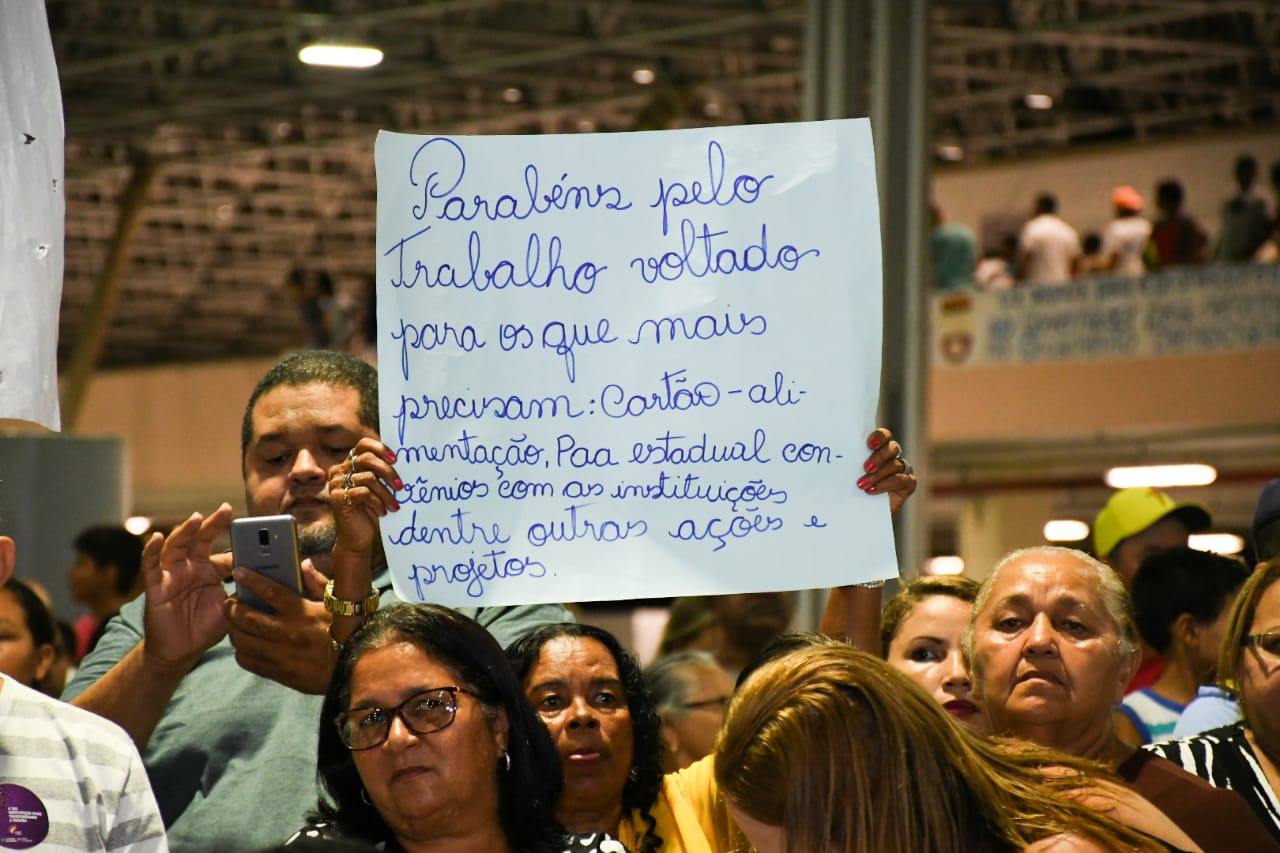 Parabéns pelo
Trabalho voltado
para os que mais
precisam: Cartão-ali-
mentação, Paa estadual con-
vênios com as instituições
dentre outras ações e
projetos.